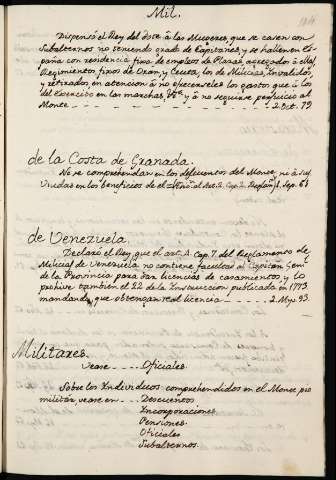 Mil.
Dispensó el Rey del Dote á las Mugeres que se casen con
Subalternos no teniendo grado de Capitanes, y se hallen en Es-
paña con residencia fixa de empleos de Plazas, agregados á ellas,
Regimientos fixos de Oran, y Ceuta, los de Milicias, Invalidos,
y retirados en atención á no ofrecerseles los gastos que á los
del Exercito en las marchas, &a y á no seguirse perjuicio al
Monte - - - - 2 Oct. 79
de la Costa de Granada.
No se comprehendan en los descuentos del Monte, ni á sus
Viudas en los beneficios de el Art. 2. Cap. 2. Reglam. 1. Sep. 61
de Venezuela.
Declaró el Rey, que el art. 4. Cap. 7. del Reglamento de
Milicias de Venezuela no contiene facultad al Capitan Gen.
de la Provincia para dar licencias de casamientos, y lo
prohive también el 22 de la Instruccion publicada en 1773.
mandando que obtengan real licencia - - - 2 Myo. 93.
Militares.
Vease - - - Oficiales.
Sobre los Individuos comprehendidos en el Monte pio
militar, vease en - - Descuentos
Incorporaciones.
Pensiones.
Oficiales
Subalternos.